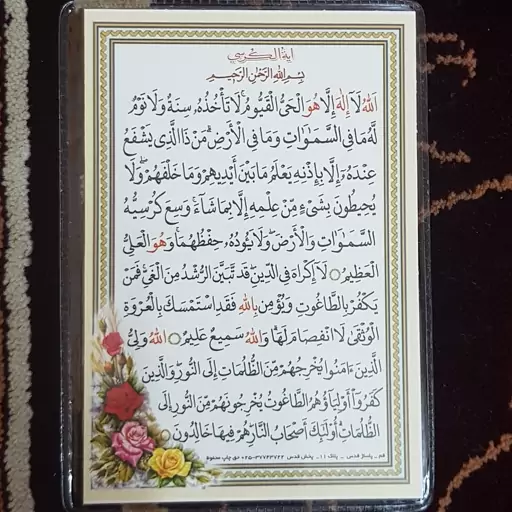 آیة الکرسی
بِسْمِ اللَّهِ الرَّحْمٰنِ الرَّحِيمِ
اللَّهُ لَآ إِلَٰهَ إِلَّا هُوَ الْحَيُّ الْقَيُّومُ ۚ لَا تَأْخُذُهُ سِنَةٌ وَلَا نَوْمٌ
لَّهُ مَا فِي السَّمَٰوَاتِ وَمَا فِي الْأَرْضِ ۗ مَن ذَا الَّذِي يَشْفَعُ
عِندَهُ إِلَّا بِإِذْنِهِ يَعْلَمُ مَا بَيْنَ أَيْدِيهِمْ وَمَا خَلْفَهُمْ ۖ وَلَا
يُحِيطُونَ بِشَيْءٍ مِّنْ عِلْمِهِ إِلَّا بِمَا شَآءَ ۚ وَسِعَ كُرْسِيُّهُ
السَّمَٰوَاتِ وَالْأَرْضَ ۖ وَلَا يَئُودُهُ حِفْظُهُمَا ۚ وَهُوَ الْعَلِيُّ
الْعَظِيمُ ۝ لَآ إِكْرَاهَ فِي الدِّينِ ۖ قَد تَّبَيَّنَ الرُّشْدُ مِنَ الْغَيِّ ۚ فَمَن
يَكْفُرْ بِالطَّاغُوتِ وَيُؤْمِن بِاللَّهِ فَقَدِ اسْتَمْسَكَ بِالْعُرْوَةِ
الْوُثْقَىٰ لَا انفِصَامَ لَهَا ۗ وَاللَّهُ سَمِيعٌ عَلِيمٌ ۝ اللَّهُ وَلِيُّ
الَّذِينَ ءَامَنُوا يُخْرِجُهُم مِّنَ الظُّلُمَاتِ إِلَى النُّورِ ۖ وَالَّذِينَ
كَفَرُوٓا أَوْلِيَآؤُهُمُ الطَّاغُوتُ يُخْرِجُونَهُم مِّنَ النُّورِ إِلَى
الظُّلُمَاتِ ۗ أُولَٰئِكَ أَصْحَابُ النَّارِ ۖ هُمْ فِيهَا خَالِدُونَ ۝
قم _ پاساژ قدس _ پلاک ۱۱ _ پخش قدس ۳۷۷۴۳۷۴۲-۰۲۵ حق چاپ محفوظ